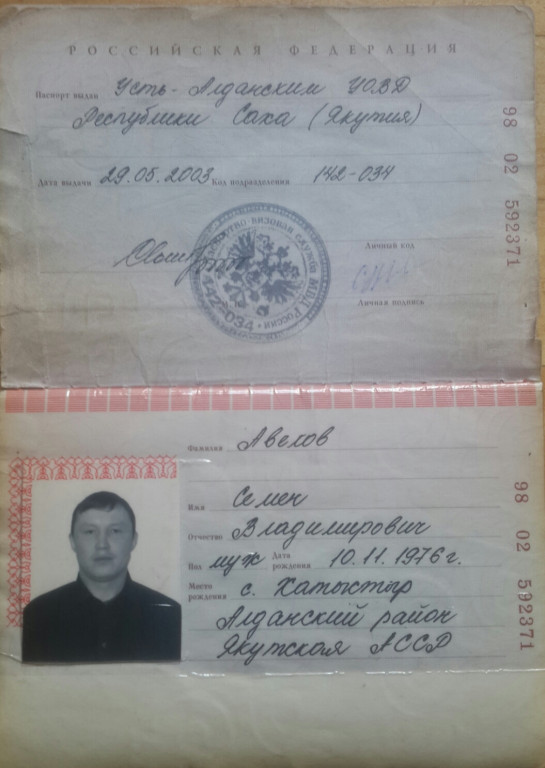 РОССИЙСКАЯ ФЕДЕРАЦИЯ
Паспорт выдан Усть-Алданским УОВД
Республики Саха (Якутия)
Дата выдачи 29.05.2003 Код подразделения 142-034
98 02 592371
паспортно-визовая служба МВД России • 142-034 •
Личный код
Личная подпись
Фамилия Авелов
Имя Семен
Отчество Владимирович
Пол муж Дата рождения 10.11.1976 г.
Место рождения с. Хатыстыр
Алданский район
Якутская АССР
98 02 592371